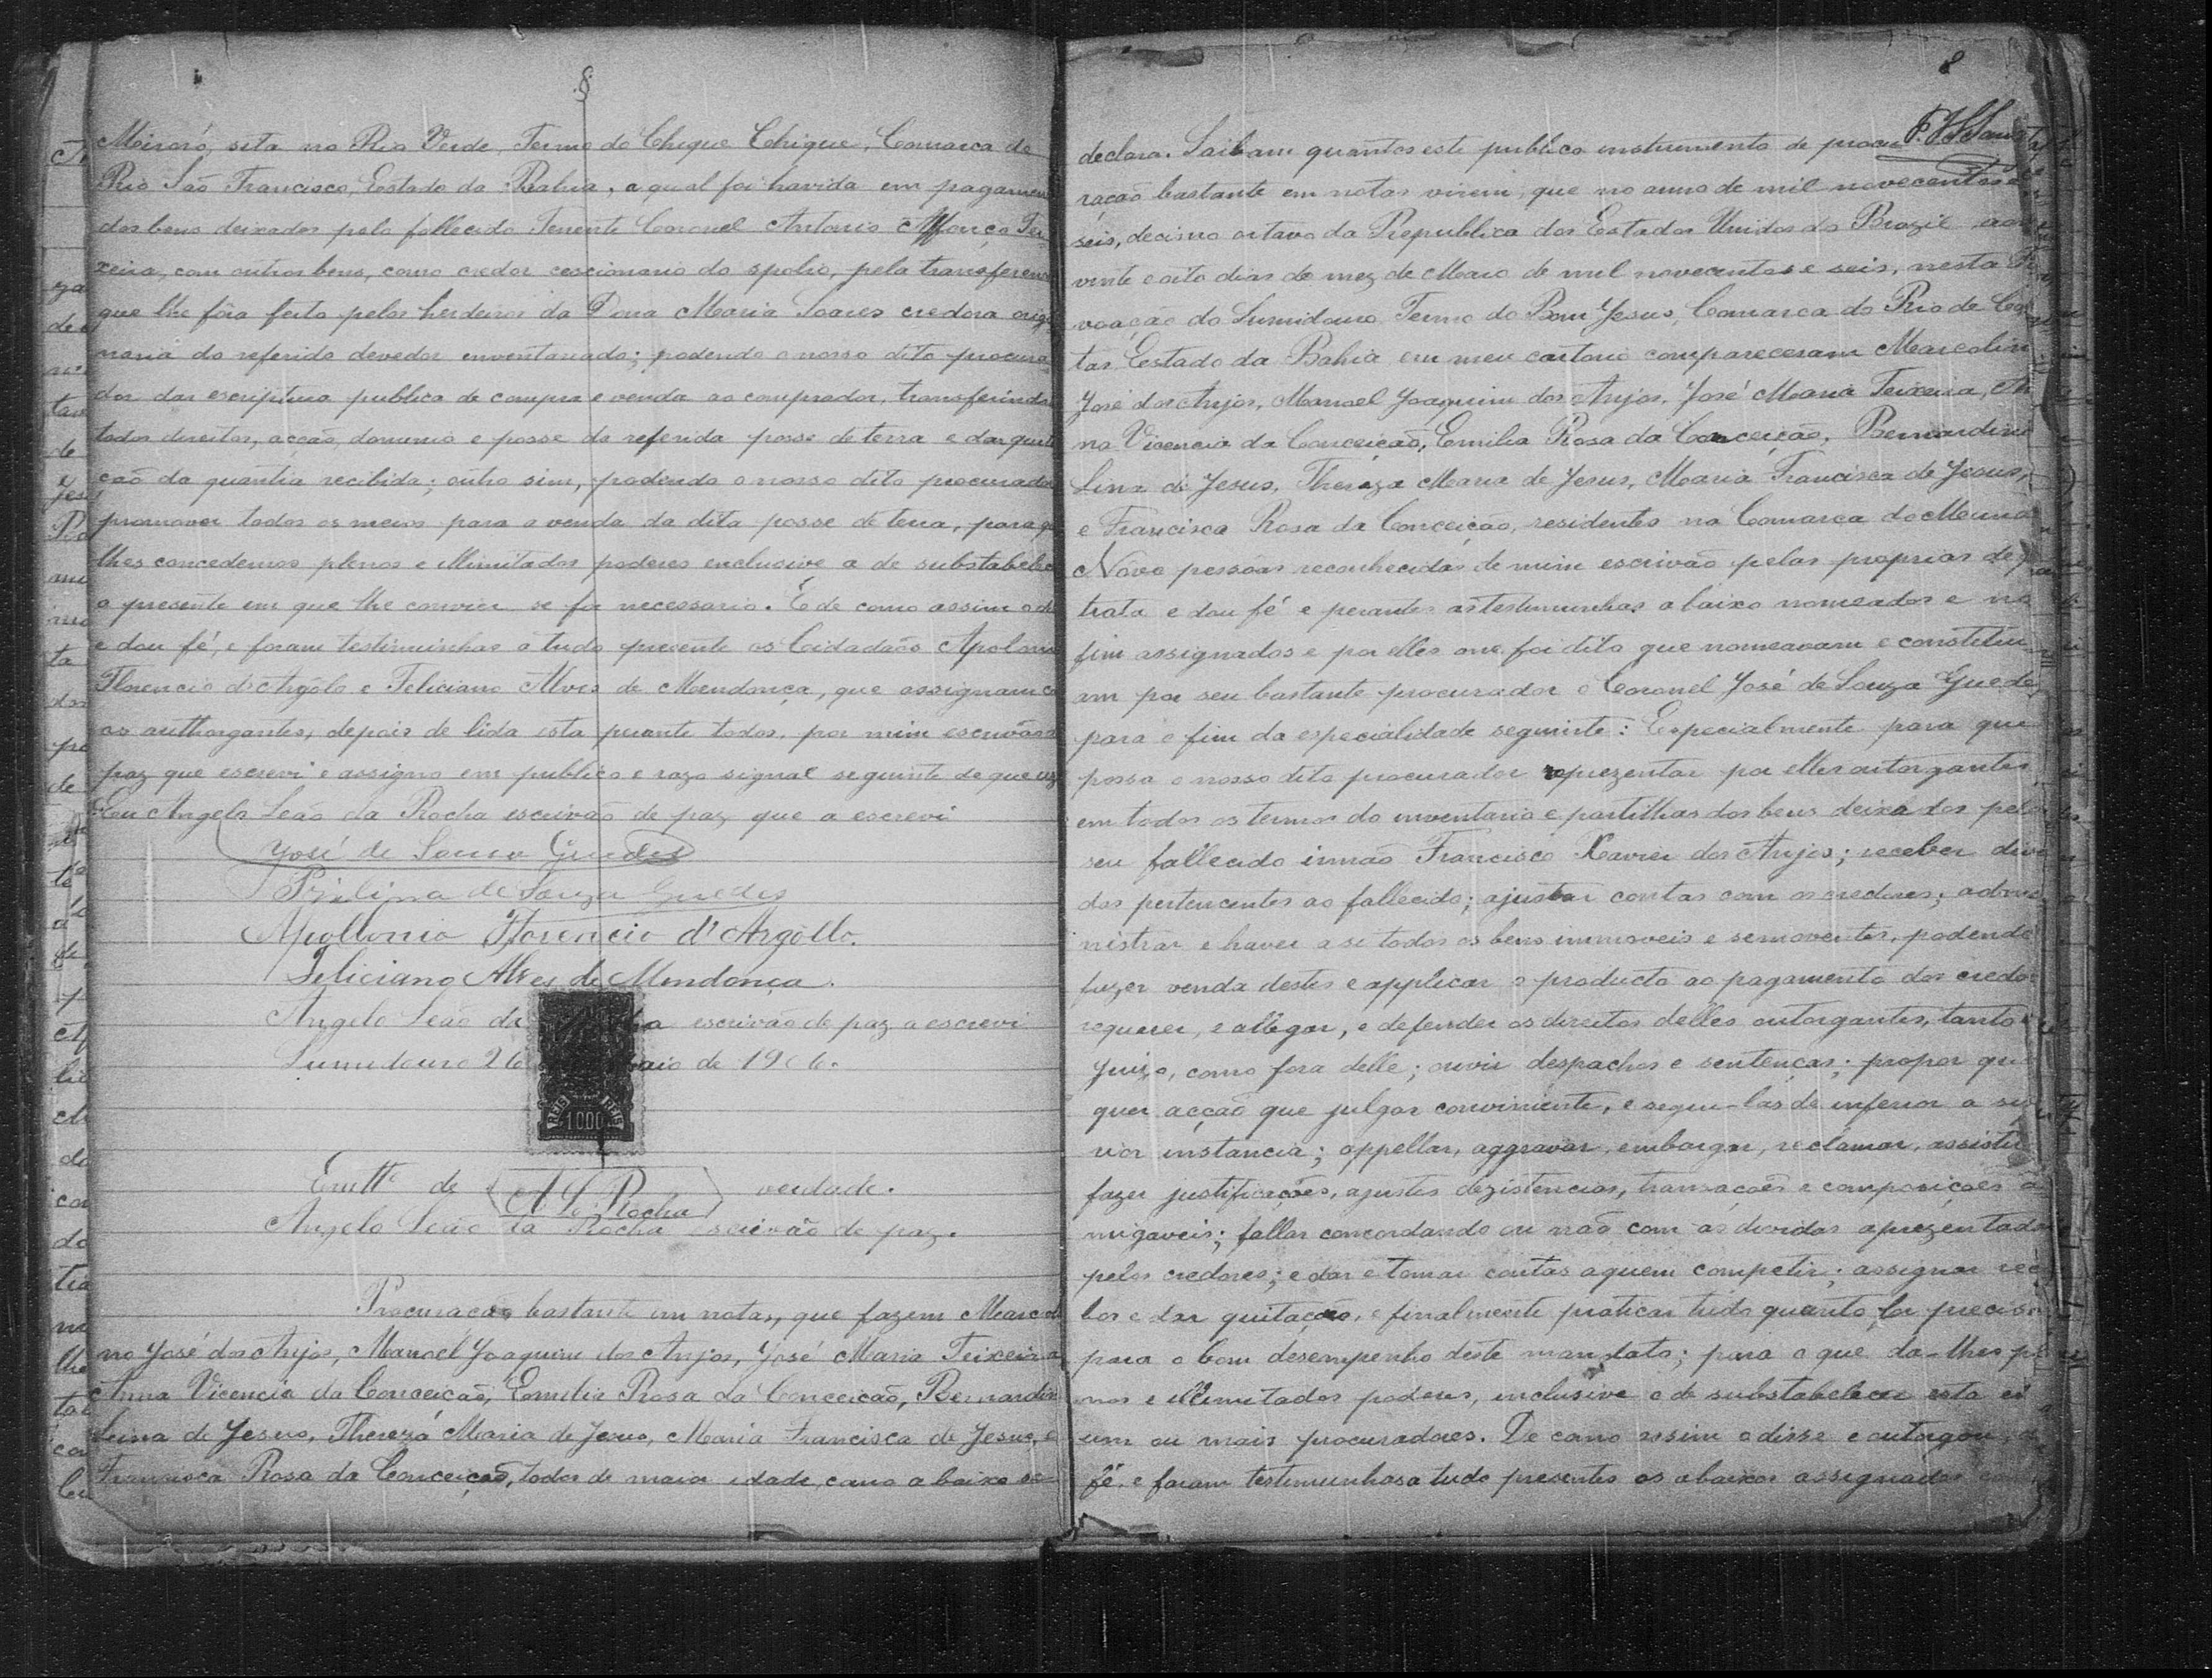 8
Miroró, sita no Rio Verde, Termo do Chique Chique, Comarca de
Rio São Francisco, Estado da Bahia, a qual foi havida em pagamen
dos bens deixados pelo fallecido Tenente Coronel Antonio Affonço Tei
xeira, com outros bens, como credor cescionario do spolio, pela transferenc
que lhe fôra feito pelos herdeiros da Dona Maria Soares credora orig
naria do referido devedor inventariado; podendo o nosso dito procura
dor dar escriptura publica de compra e venda ao comprador, transferindo
todos direitos, acção, dominio e posse da referida posse de terra e dar quita
ção da quantia recibida; outro sim, podendo o nosso dito procurador
promover todos os meios para a venda da dita posse de terra, para q
lhes concedemos plenos e illimitados poderes inclusive a de substabelec
o presente em que lhe convier se for necessario. E de como assim o d
e dou fé, e foram testimunhas a tudo presente os Cidadãos Apolonio
Florencio d'Argôlo e Feliciano Alves de Mendonça, que assignam c
os outhorgantes, depois de lida esta perante todos, por mim escrivão d
paz que escrevi e assigno em publico e razo signal seguinte de que uzo
Eu Angelo Leão da Rocha escrivão de paz que a escrevi
José de Souza Guedes
de Souza Guedes
Apollonio Florencio d'Argôllo.
Feliciano Alves de Mendonça.
Angelo Leão da escrivão de paz a escrevi
Sumidouro 26 aio de 1906.
REIS 1000 REIS
Em ttº de A L Rocha verdade.
Angelo Leão da Rocha escrivão de paz.
Procuração bastante em notas, que fazem Marcol
no José dos Anjos, Manoel Joaquim dos Anjos, José Maria Teixeira
Anna Vicencia da Conceição, Emilia Rosa da Conceição, Bernardin
Lina de Jesus, Thereza Maria de Jesus, Maria Francisca de Jesus, e
Francisca Rosa da Conceição, todos de maior idade, como a baixo se
8
declara. Saibam quantos este publico instrumento de procu
ração bastante em notas virem, que no anno de mil novecentos e
seis, decimo oitavo da Republica dos Estados Unidos do Brazil aos
vinte e oito dias do mez de Maio de mil novecentos e seis, nesta Po
voação do Sumidouro Termo do Bom Jesus, Comarca do Rio de Con
tas Estado da Bahia em meu cartorio compareceram Marcolin
José dos Anjos, Manoel Joaquim dos Anjos, José Maria Teixeira, An
na Vicencia da Conceição, Emilia Rosa da Conceição, Bernardina
Lina de Jesus, Thereza Maria de Jesus, Maria Francisca de Jesus,
e Francisca Rosa da Conceição, residentes na Comarca do
Novo pessôas reconhecidas de mim escrivão pelas proprias de
trata e dou fé e perantes as testimunhas abaixo nomeados e no
fim assignados e por elles me foi dito que nomeavam e constituu
am por seu bastante procurador o Coronel José de Souza Guede
para o fim da especialidade seguinte: Especialmente para que
possa o nosso dito procurador reprezentar por elles outorgantes
em todos os termos do inventario e partilhas dos bens deixados pelo
seu fallecido irmão Francisco Xavier dos Anjos; receber divi
das pertencentes ao fallecido; ajustar contas com os credores; admi
nistrar e haver a si todos os bens immoveis e semoventes, podendo
fazer venda destes e applicar o producto ao pagamento dos credo
requerer, e allegar, e defender os direitos delles outorgantes, tanto e
juizo, como fora delle; ouvir despachos e sentenças; propor qu
quer acção que julgar conviniente, e segui-las de inferior a su
rior instancia; appellar, aggravar, embargar, reclamar, assistir
fazer justificações, ajustes dezistencias, transações e composições a
migaveis; fallar concordando ou não com as dividas aprezentad
pelos credores; e dar e tomar contas a quem competir; assignar rec
bos e dar quitação, e finalmente praticar tudo quanto for preciso
para o bom desempenho deste mandato; para o que da-lhes pl
nos e illimitados poderes, inclusive o de substabelecer esta e
um ou mais procuradores. De como assim o disse e outorgou, d
fé, e foram testimunhas a tudo presentes os abaixos assignados com